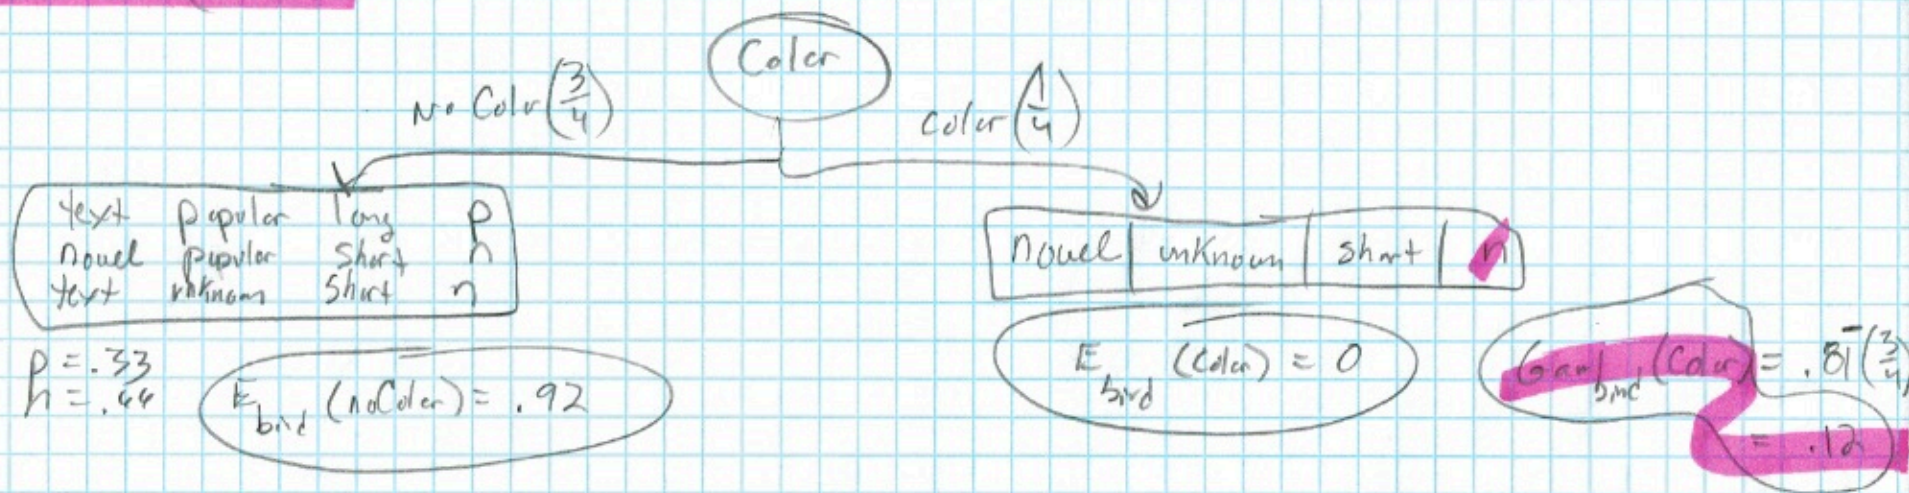 Color
No Color (3/4)
Color (1/4)
text popular long p
novel popular short n
text unknown short n
novel unknown short n
p = .33
n = .66
E bird (noColor) = .92
E bird (Color) = 0
Gain bird (Color) = .81 - (3/4)
= .12